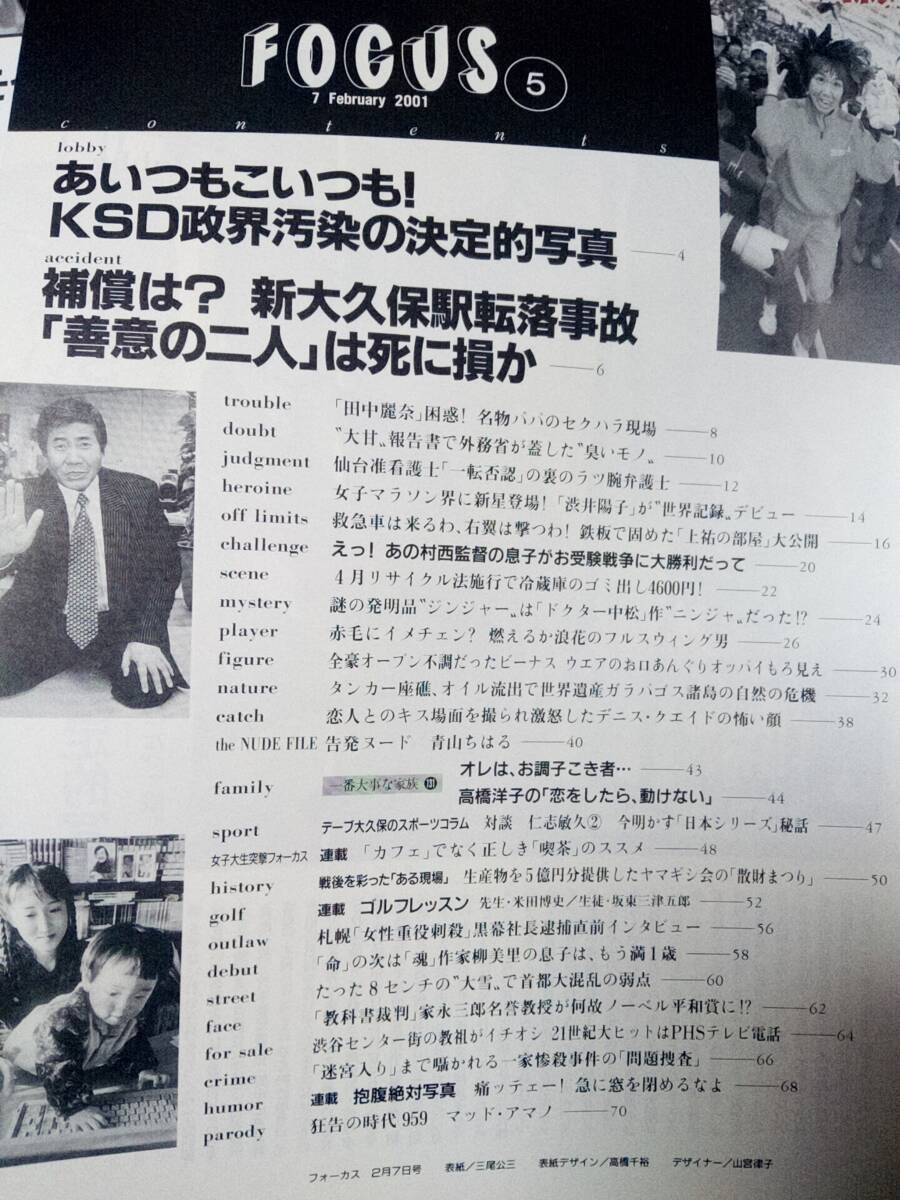 FOCUS 5
7 February 2001
contents
lobby
あいつもこいつも!
KSD政界汚染の決定的写真 ——4
accident
補償は? 新大久保駅転落事故
「善意の二人」は死に損か ——6
trouble 「田中麗奈」困惑! 名物パパのセクハラ現場 ——8
doubt 〝大甘〟報告書で外務省が蓋した〝臭いモノ〟 ——10
judgment 仙台准看護士「一転否認」の裏のラツ腕弁護士 ——12
heroine 女子マラソン界に新星登場!「渋井陽子」が〝世界記録〟デビュー ——14
off limits 救急車は来るわ、右翼は撃つわ! 鉄板で固めた「上祐の部屋」大公開 ——16
challenge えっ! あの村西監督の息子がお受験戦争に大勝利だって ——20
scene 4月リサイクル法施行で冷蔵庫のゴミ出し4600円! ——22
mystery 謎の発明品〝ジンジャー〟は「ドクター中松」作〝ニンジャ〟だった!? ——24
player 赤毛にイメチェン? 燃えるか浪花のフルスウィング男 ——26
figure 全豪オープン不調だったビーナス ウエアのお口あんぐりオッパイもろ見え ——30
nature タンカー座礁、オイル流出で世界遺産ガラパゴス諸島の自然の危機 ——32
catch 恋人とのキス場面を撮られ激怒したデニス・クエイドの怖い顔 ——38
the NUDE FILE 告発ヌード 青山ちはる ——40
family 一番大事な家族 オレは、お調子こき者… ——43
高橋洋子の「恋をしたら、動けない」 ——44
sport テーブ大久保のスポーツコラム 対談 仁志敏久② 今明かす「日本シリーズ」秘話 ——47
女子大生突撃フォーカス 連載 「カフェ」でなく正しき「喫茶」のススメ ——48
history 戦後を彩った「ある現場」 生産物を5億円分提供したヤマギシ会の「散財まつり」 ——50
golf 連載 ゴルフレッスン 先生・米田博史/生徒・坂東三津五郎 ——52
outlaw 札幌「女性重役刺殺」黒幕社長逮捕直前インタビュー ——56
debut 「命」の次は「魂」作家柳美里の息子は、もう満1歳 ——58
street たった8センチの〝大雪〟で首都大混乱の弱点 ——60
face 「教科書裁判」家永三郎名誉教授が何故ノーベル平和賞に!? ——62
for sale 渋谷センター街の教祖がイチオシ 21世紀大ヒットはPHSテレビ電話 ——64
crime 「迷宮入り」まで囁かれる一家惨殺事件の「問題捜査」 ——66
humor 連載 抱腹絶対写真 痛ッテェー! 急に窓を閉めるなよ ——68
parody 狂告の時代 959 マッド・アマノ ——70
フォーカス 2月7日号 表紙/三尾公三 表紙デザイン/高橋千裕 デザイナー/山宮律子